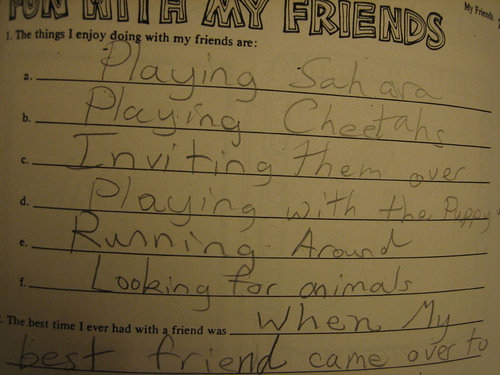 FUN WITH MY FRIENDS
My Friends
1. The things I enjoy doing with my friends are:
a. Playing Sahara
b. Playing Cheetahs
c. Inviting Them over
d. Playing with the Puppy
e. Running Around
f. Looking for animals
. The best time I ever had with a friend was When My
best friend came over to